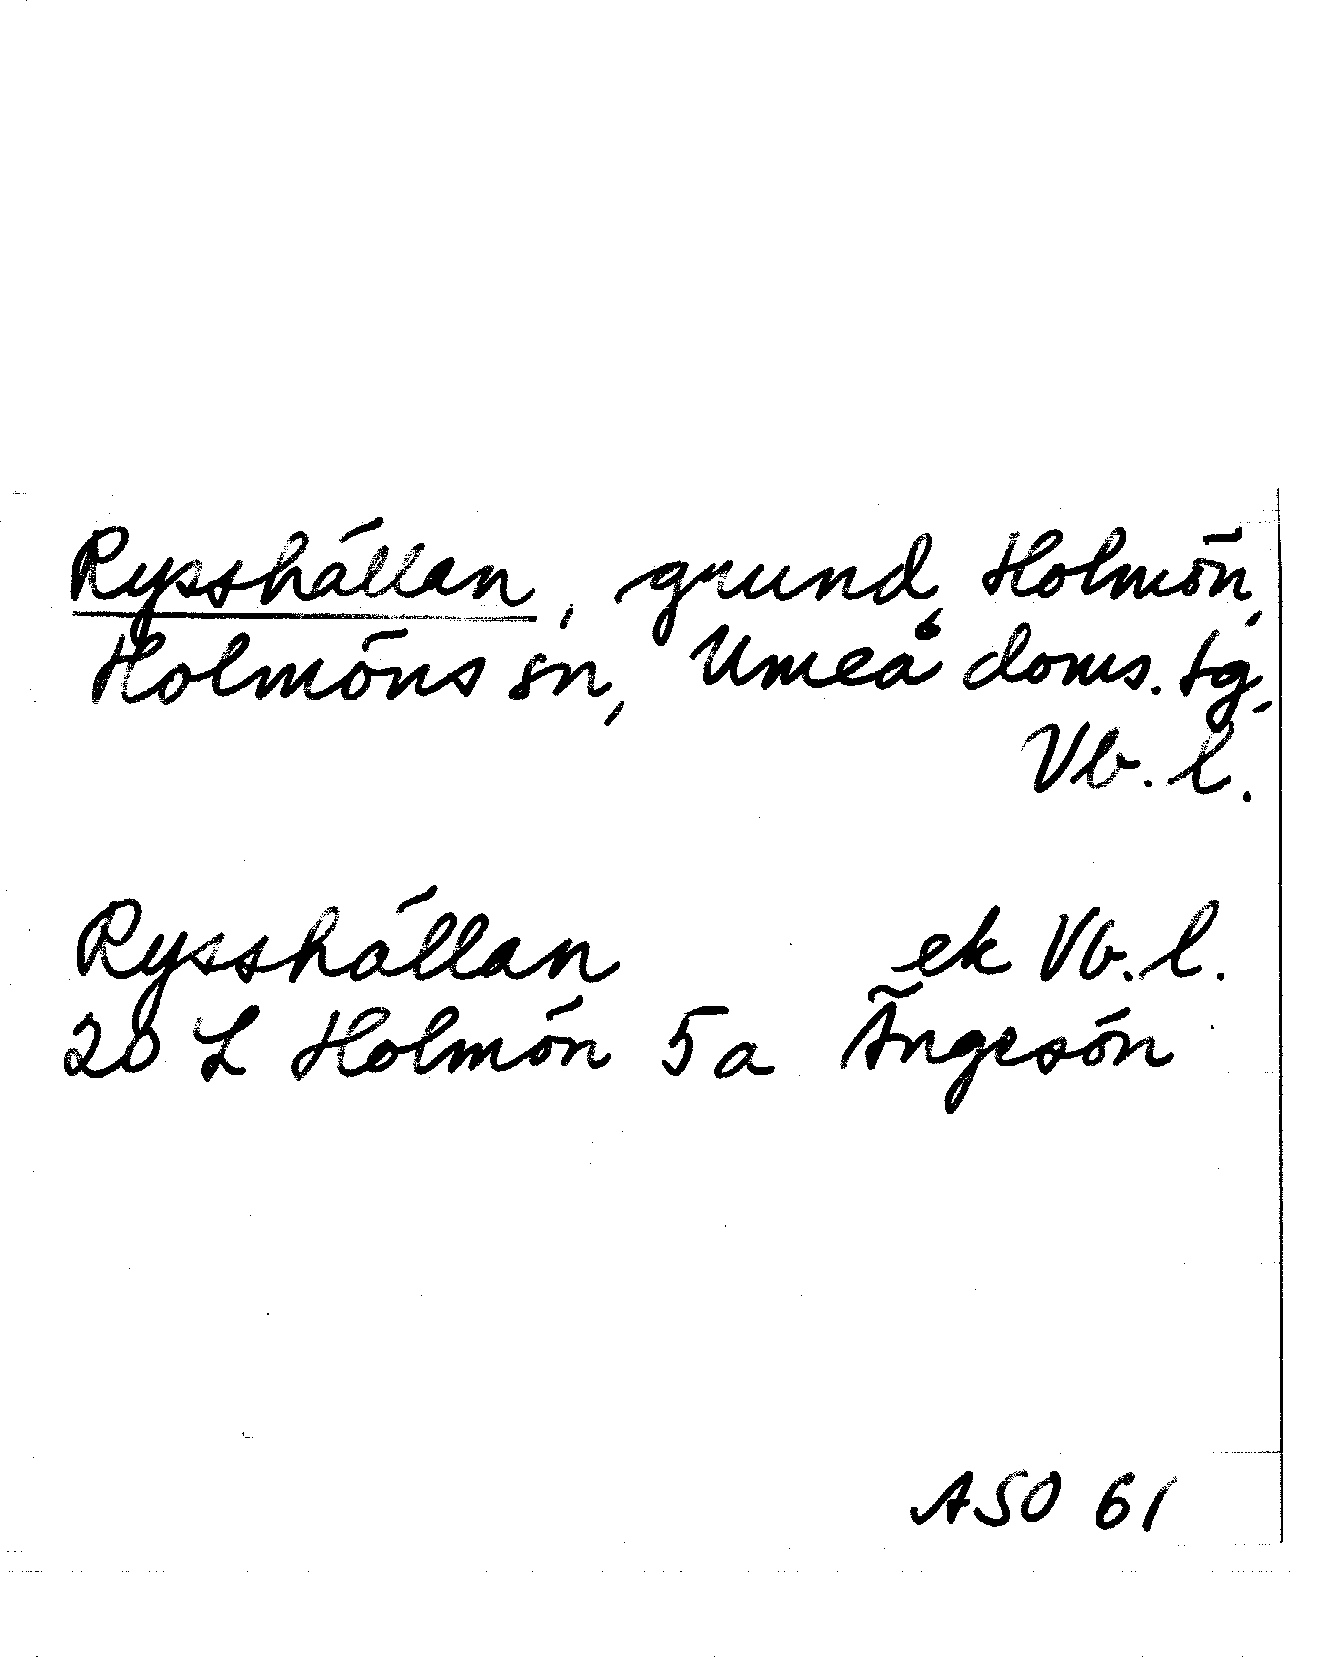 Rysshällan, grund, Holmön,
Holmöns sn, Umeå doms. tg,
Vb. l.
Rysshällan ek Vb. l.
20 L Holmön 5a Ängesön
ASO 61